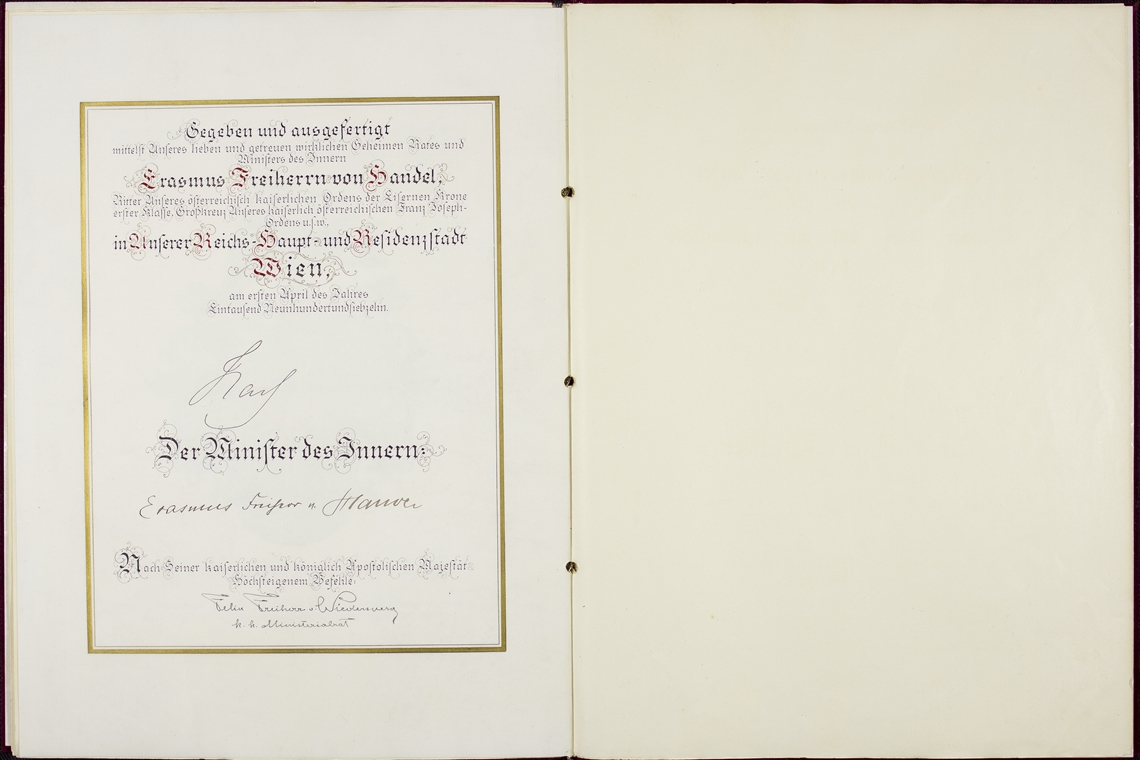 Gegeben und ausgefertigt
mittelst Unseres lieben und getreuen wirklichen Geheimen Rates und
Ministers des Innern
Erasmus Freiherrn von Handel,
Ritter Unseres österreichisch kaiserlichen Ordens der Eisernen Krone
erster Klasse, Großkreuz Unseres kaiserlich österreichischen Franz Joseph-
Ordens u.s.w.,
in Unserer Reichs-Haupt- und Residenzstadt
Wien,
am ersten April des Jahres
Eintausend Neunhundertundsiebzehn.
Karl
Der Minister des Innern:
Erasmus Freiherr v. Handel
Nach Seiner kaiserlichen und königlich Apostolischen Majestät
Höchsteigenem Befehle:
Freiherr v
k. k. Ministerialrat